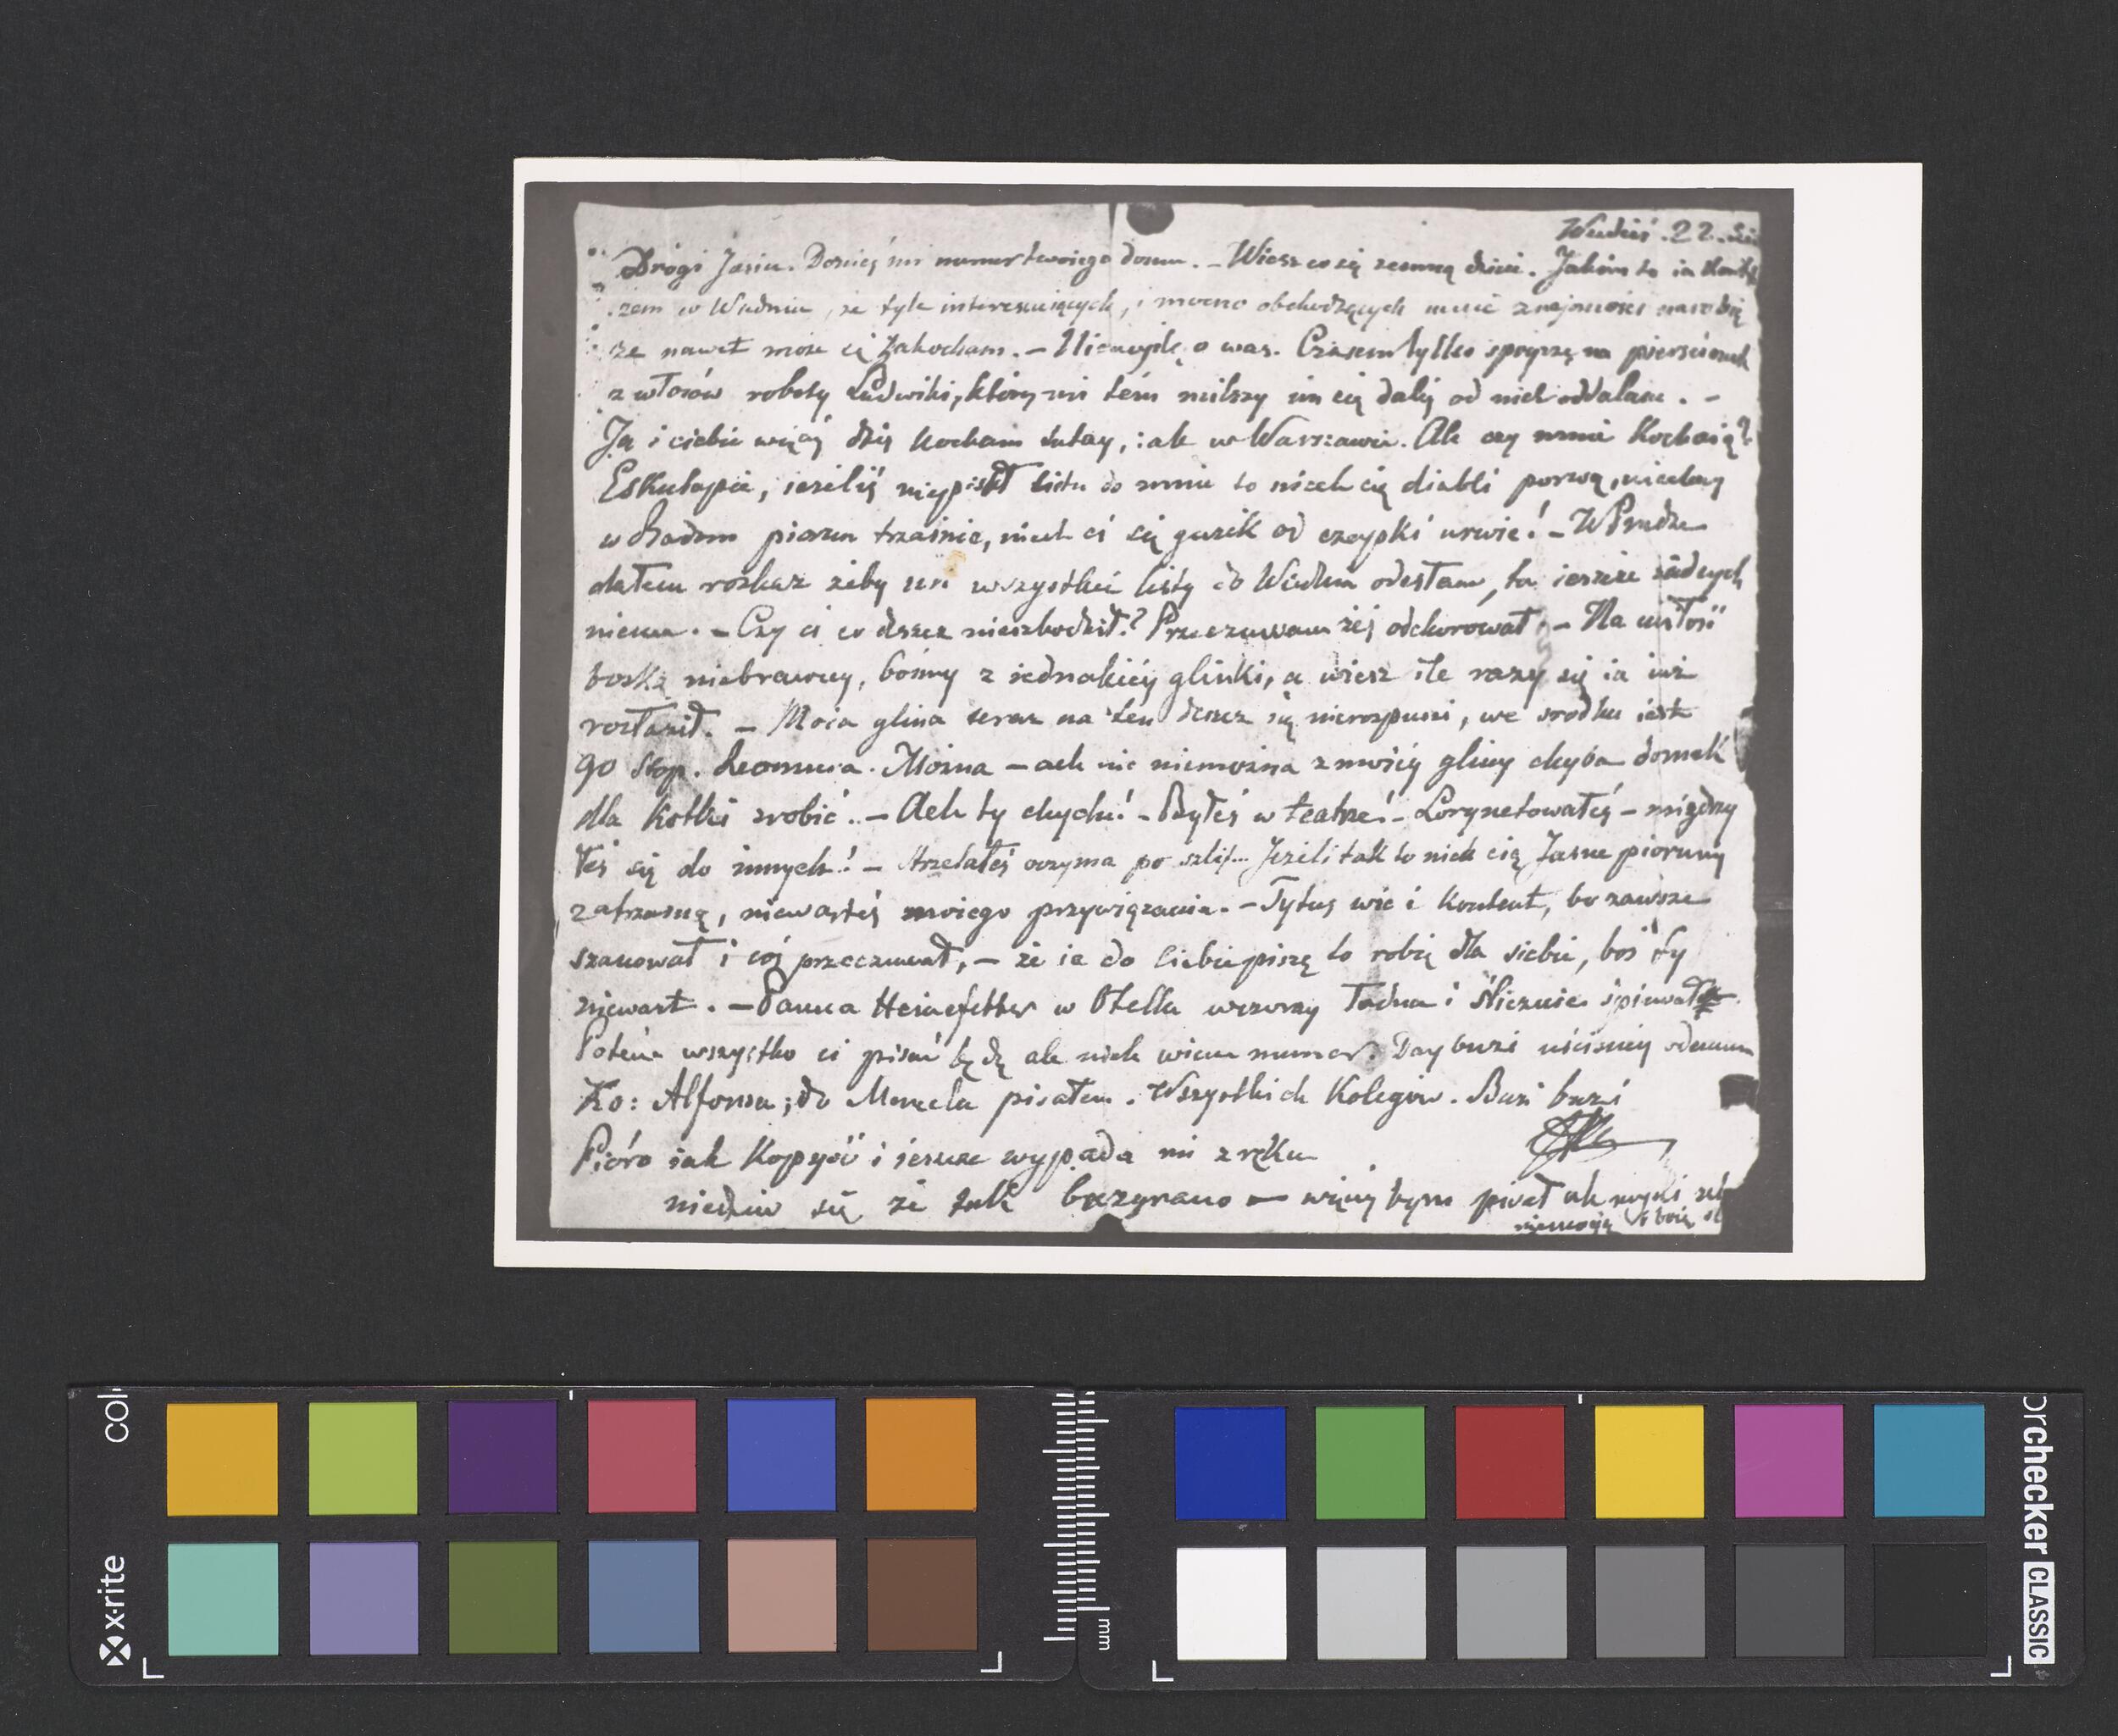 Wiedeń. 22.
Drogi Jasiu. Donieś mi numer twoiego domu. – Wiesz co się zemną dzieie. Jakim to ia
w Wiedniu, że tyle interesuiących, i mocno obchodzących mnie znajomości
że nawet może się zakocham. – Niemyślę o was. Czasem tylko spoyrzę na pierścionek
z włosów roboty Ludwiki, który mi tém milszy im się daléj od nich oddalam. –
Ja i ciebie więcéj dziś kocham tutay, iak w Warszawie. Ale czy mnie kochaią?
Eskulapie, ieżeliś niepisał listu do mnie to niech cię diabli porwą, niechay
w Radom piorun trzaśnie, niech ci się guzik od czapki urwie! – W Pradze
dałem rozkaz żeby mi wszystkie listy do Wiednia odesłano, ta ieszcze żadnych
niema. – Czy ci co deszcz nieszkodził? Przeczuwam żeś odchorował. – Na miłość
boską niebrawuy, bośmy z iednakiéy glinki, a wiesz ile razy się ia iuż
rozłaził. – Moia glina teraz na ten deszcz się nierozpuści, we środku iest
90 stop. Reomiura. Można – ach nic niemożna z moiéy gliny chyba domek
dla kotki zrobić. – Ach ty chychu! – Byłeś w teatrze! – Lornetowałeś –
łeś się do innych! – Strzelałeś oczyma po szlif... Jeżeli tak to niech cię Jasne pioruny
zatrzasną, niewarteś moiego przywiązania. – Tytus wie i kontent, bo zawsze
szanował i coś przeczuwał, – że ia do Ciebie piszę to robię dla siebie, boś ty
niewart. – Panna Heinefetter w Otellu wczoray ładna i ślicznie śpiewała.
Potém wszystko ci pisać będę ale niech wiem numer. Day buzi uściśniy odemnie
Ko: Alfonsa; do Marcela pisałem. Wszystkich Kolegów. Buzi buzi
Pióro iak kopyść i ieszcze wypada mi z ręku
niedziw się że tak bazgrano – więcéj bym pisał ale myśli
niemogą